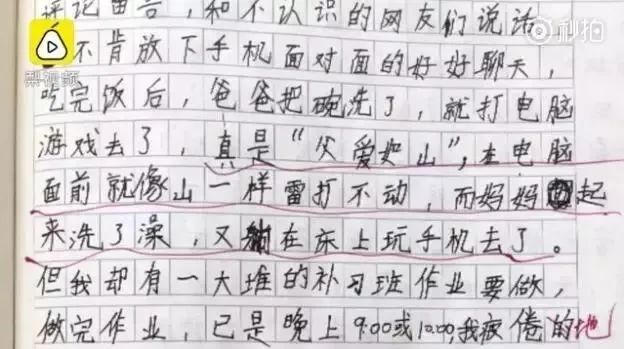 评论留言，和不认识的网友们说话，
不肯放下手机面对面的好好聊天，
吃完饭后，爸爸把碗洗了，就打电脑
游戏去了，真是“父爱如山”，坐电脑
面前就像山一样雷打不动，而妈妈起
来洗了澡，又躺在床上玩手机去了。
但我却有一大堆的补习班作业要做，
做完作业，已是晚上9:00或10:00，我疲倦的地
梨视频
秒拍